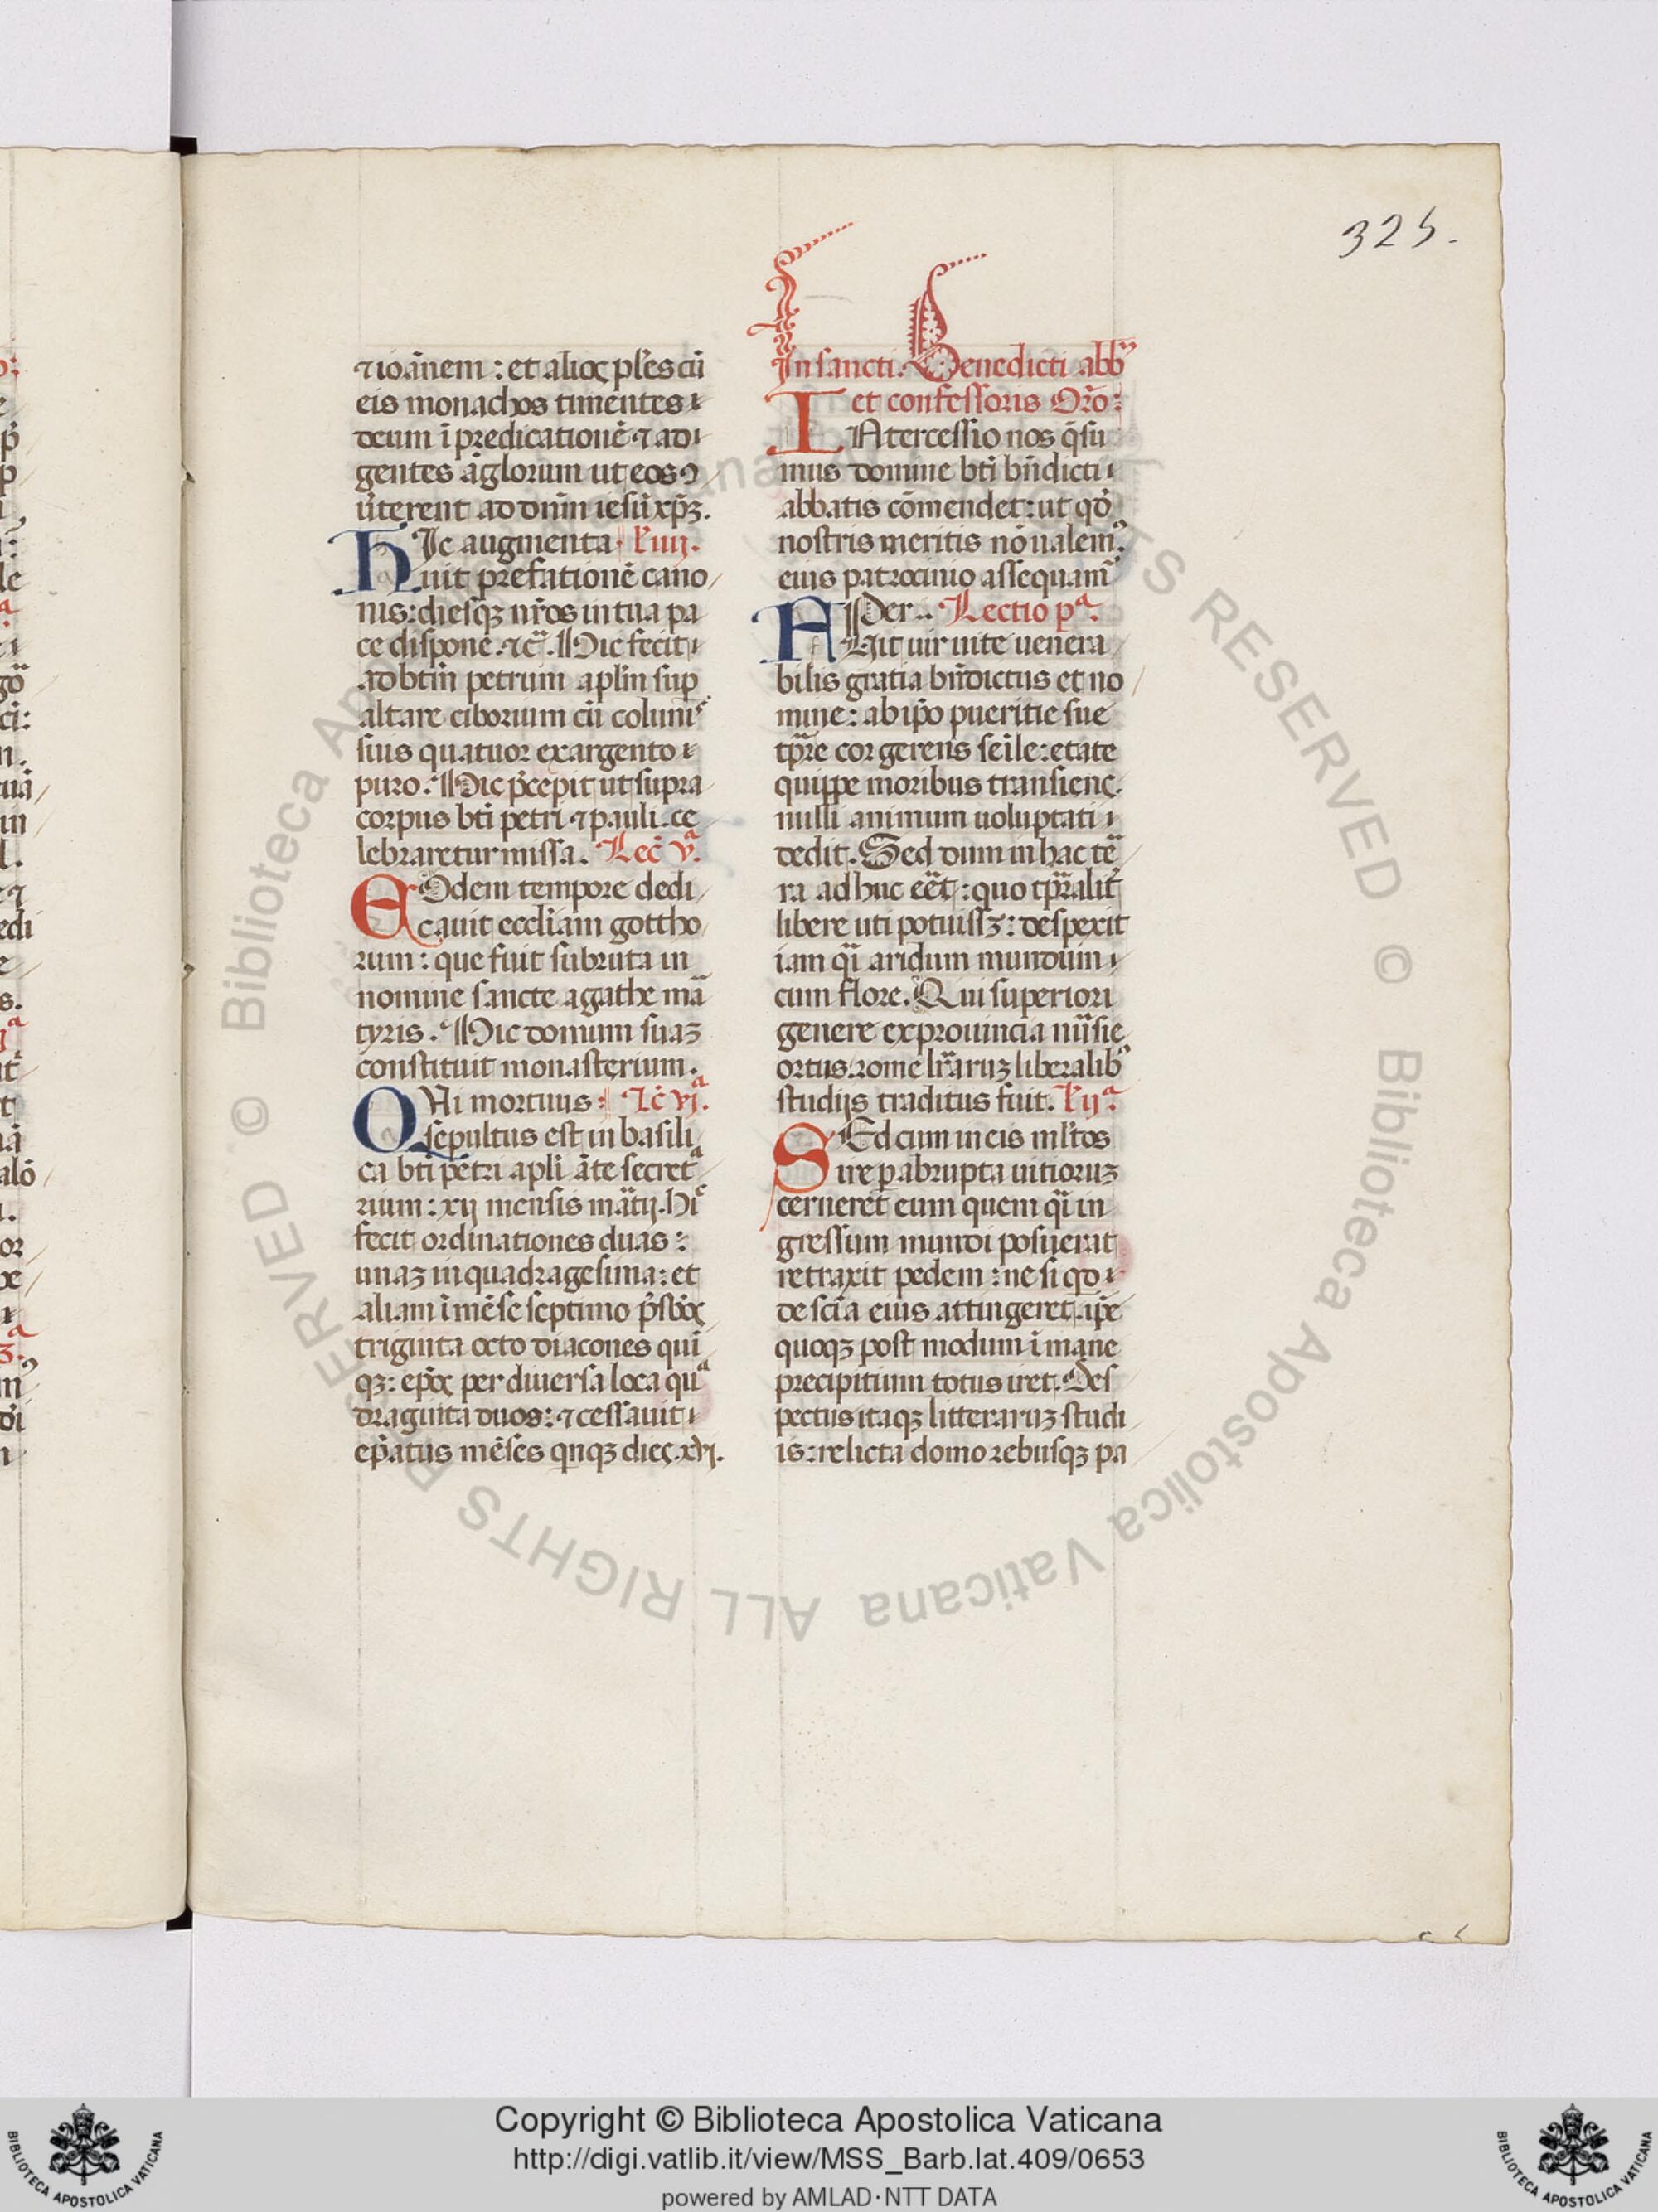 325.
⁊ ioānem : et alioꝝ pl̄es cū
eis monachos timentes
deum ī predicationē ⁊ adi
gentes āglorum ut eos ꝯ
ūterent ad dn̄m iesū xp̄ꝫ.
HIc augmenta. l'iiij.
uit prefationē cano
nis: diesqꝫ nr̄os in tua pa
ce dispone. ⁊c̄. Hic fecit
ad btm̄ petrum aplm̄ sup
altare ciborium cū colunīs
suis quatuor ex argento
puro. Hic p̄cepit ut supra
corpus bti petri ⁊ pauli ce
lebraretur missa. Lec̄ vᵃ.
EOdem tempore dedi
cauit eccliam gottho
rum : que fuit subruta in
nomine sancte agathe mā
tyris. Hic domum suaꝫ
constituit monasterium.
QUi mortuus : Lc̄ vjᵃ.
sepultus est in basili
ca bti petri apli āte secretᵃ
rium : xij mensis mātij. Hic
fecit ordinationes duas :
unaꝫ in quadragesima : et
aliam ī mēse septimo p̄sbōꝝ
triginta octo diacones quī
qꝫ : ep̄oꝝ per diuersa loca quᵃ
draginta duos : ⁊ cessauit
ep̄atus mēses qnqꝫ dieꝝ. xvj.
In sancti Benedicti abb
et confessoris Orō:
INtercessio nos q̄su
mus domine bti bn̄dicti
abbatis cōmendet : ut qd̄
nostris meritis nō ualemꝰ
eius patrocinio assequamꝰ
Per .. Lectio pᵃ.
FUit uir uite uenera
bilis gratia bn̄dictus et no
mine : ab ip̄o pueritie sue
tp̄re cor gerens seile : etate
quippe moribus transienꝝ.
nulli animum uoluptati
dedit. Sed dum in hac te
ra adhuc eēt : quo tp̄ralit̄
libere uti potuissꝫ : despexit
iam qⁱ aridum mundum
cum flore. Qui superiori
genere ex prouincia nursie
ortus rome lr̄aruꝫ liberalibꝰ
studijs traditus fuit. l'ijᵃ.
SEd cum in eis ml'tos
ire p abrupta uitioruꝫ
cerneret eum quem qⁱ in
gressum mundi posuerat
retraxit pedem : ne si qd
de scīa eius attingeret ip̄e
quoqꝫ post modum ī mane
precipitium totus iret. Des
pectus itaqꝫ litteraruꝫ studi
is : relicta domo rebusqꝫ pa
© Biblioteca Apostolica Vaticana ALL RIGHTS RESERVED
Copyright © Biblioteca Apostolica Vaticana
http://digi.vatlib.it/view/MSS_Barb.lat.409/0653
powered by AMLAD·NTT DATA
BIBLIOTECA APOSTOLICA VATICANA
BIBLIOTECA APOSTOLICA VATICANA